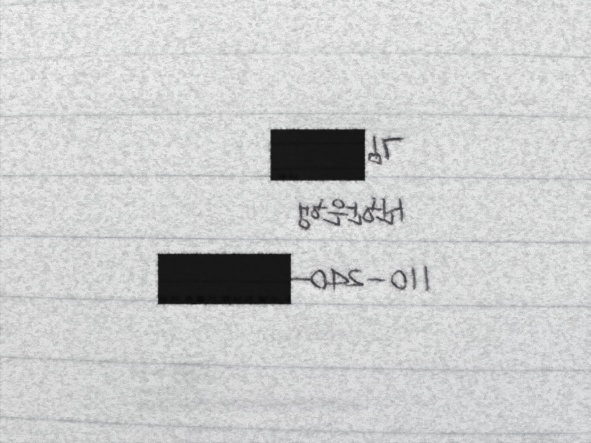 김
신한은행
110-240-